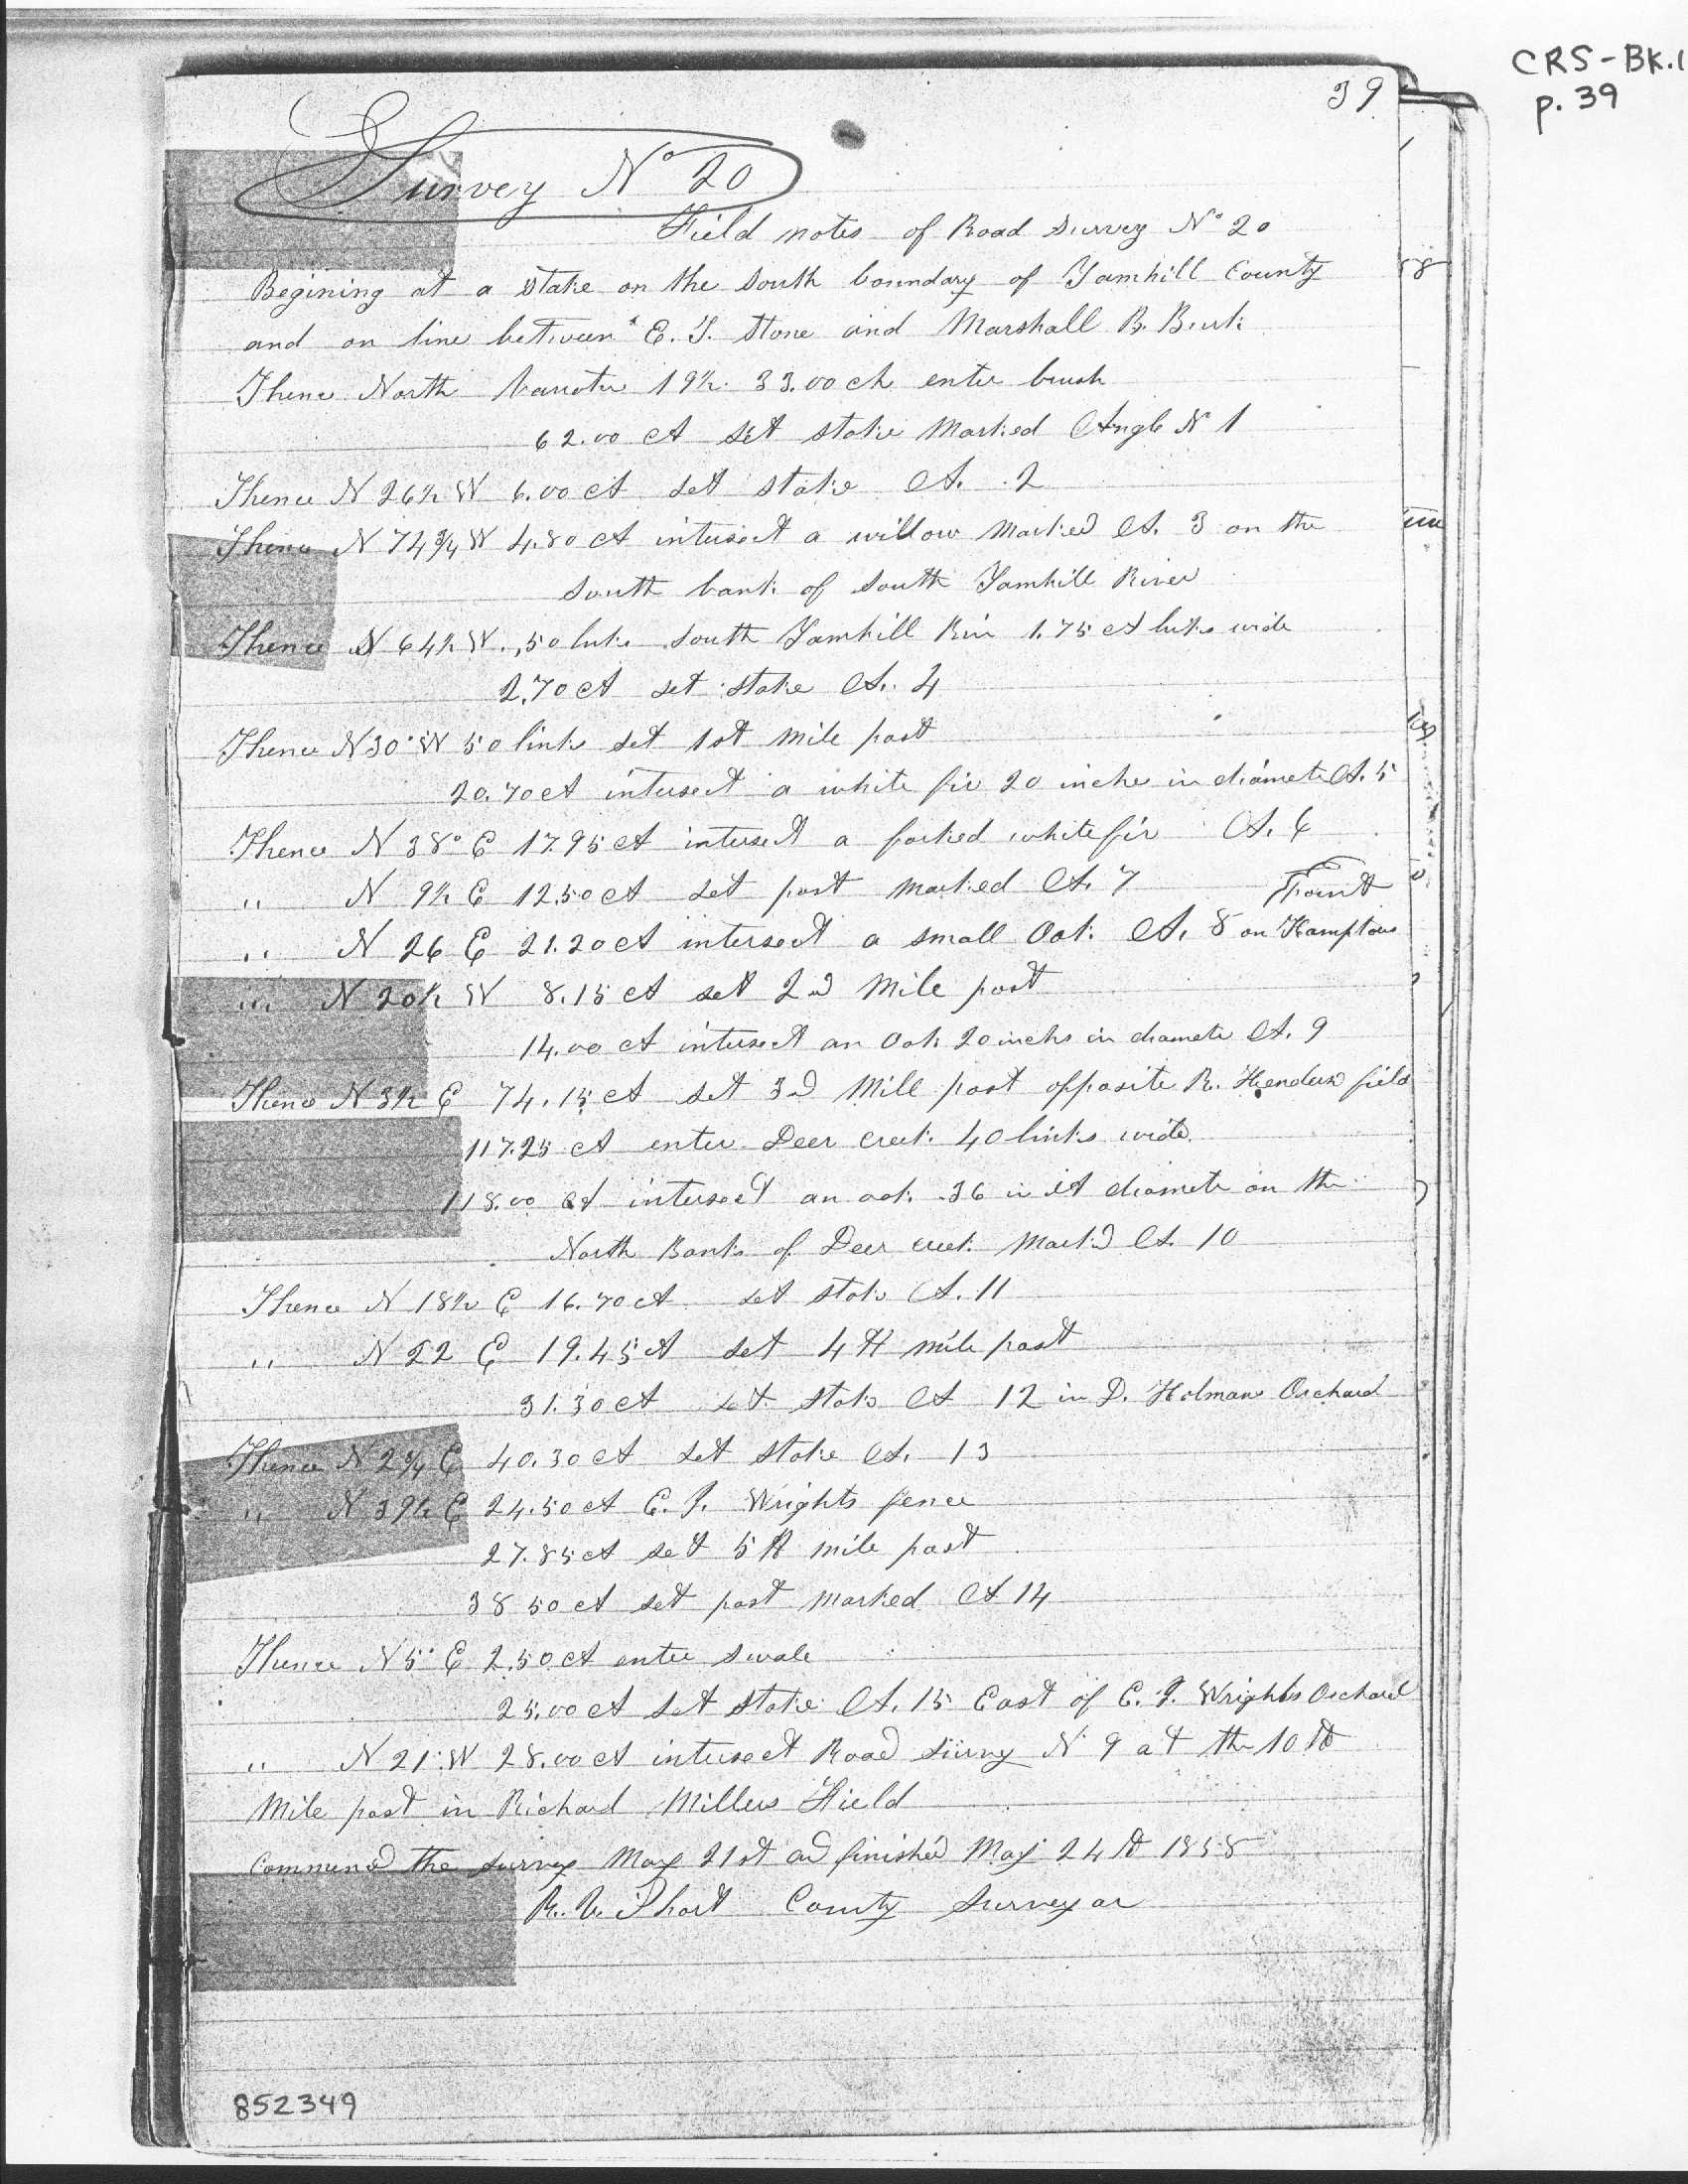 CRS-BK.1
p. 39
39
Survey No 20
Field notes of Road Survey No 20
Begining at a stake on the South boundary of Yamhill County
and on line between E. T. Stone and Marshall B. Burk
Thence North 19½ 33.00 ch enter brush
62.00 ch set stake Marked Angle N 1
Thence N 26½ W 6.00 ch set stake A. 2
Thence N 74¾ W 4.80 ch intersect a willow marked A. 3 on the
South bank of South Yamhill River
Thence N 64½ W .50 links South Yamhill Riv 1.75 ch links wide
2.70 ch set stake A. 4
Thence N 30° W 50 links set 1st Mile post
20.70 ch intersect a white fir 20 inches in diamete A. 5
Thence N 38° E 17.95 ch intersect a forked white fir A. 6
" N 9½ E 12.50 ch set post marked A. 7
" N 26 E 21.20 ch intersect a small Oak A. 8 on Hamptons
" N 20½ W 8.15 ch set 2d Mile post
14.00 ch intersect an Oak 20 inchs in diamete A. 9
Thence N 3½ E 74.15 ch set 3d Mile post opposite R. Henders field
117.25 ch enter Deer creek 40 links wide
118.00 ch intersect an oak 36 in diamete on the
North Bank of Deer creek Markd A. 10
Thence N 18½ E 16.70 ch set stake A. 11
" N 22 E 19.45 ch set 4th mile post
31.30 ch set stake A 12 in D. Holmans Orchard
Thence N 2¾ E 40.30 ch set stake A. 13
" N 39½ E 24.50 ch E. J. Wrights fence
27.85 ch set 5th mile post
38 50 ch set post marked A 14
Thence N 5° E 2.50 ch enter swale
25.00 ch set stake A. 15 East of E. J. Wrights Orchard
" N 21° W 28.00 ch intersect Road Survey N 9 at the 10th
Mile post in Richard Millers Field
Commencd the survey May 21st and finishd May 24th 1858
R. V. Short County Surveyor
852349